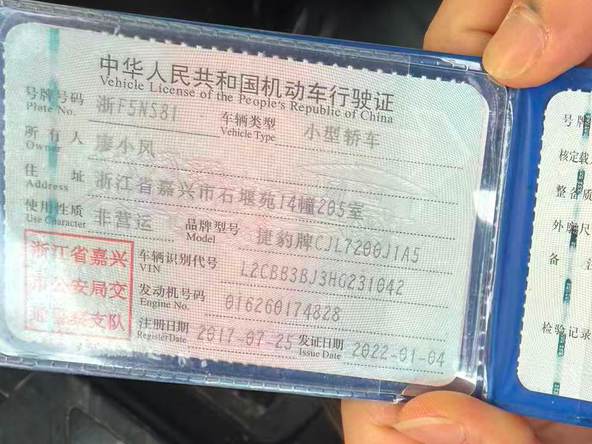 中华人民共和国机动车行驶证
Vehicle License of the People's Republic of China
号牌号码 浙F5NS81 车辆类型 小型轿车
Plate No. Vehicle Type
所有人 廖小凤
Owner
住址 浙江省嘉兴市石堰苑14幢205室
Address
使用性质 非营运 品牌型号 捷豹牌CJL7200J1A5
Use Character Model
浙江省嘉兴
市公安局交
通警察支队
车辆识别代号 L2CBB3BJ3HG231042
VIN
发动机号码 016260174828
Engine No.
注册日期 2017-07-25 发证日期 2022-01-04
Register Date Issue Date
号牌
核定载
整备质
外廓尺
备 注
检验记录